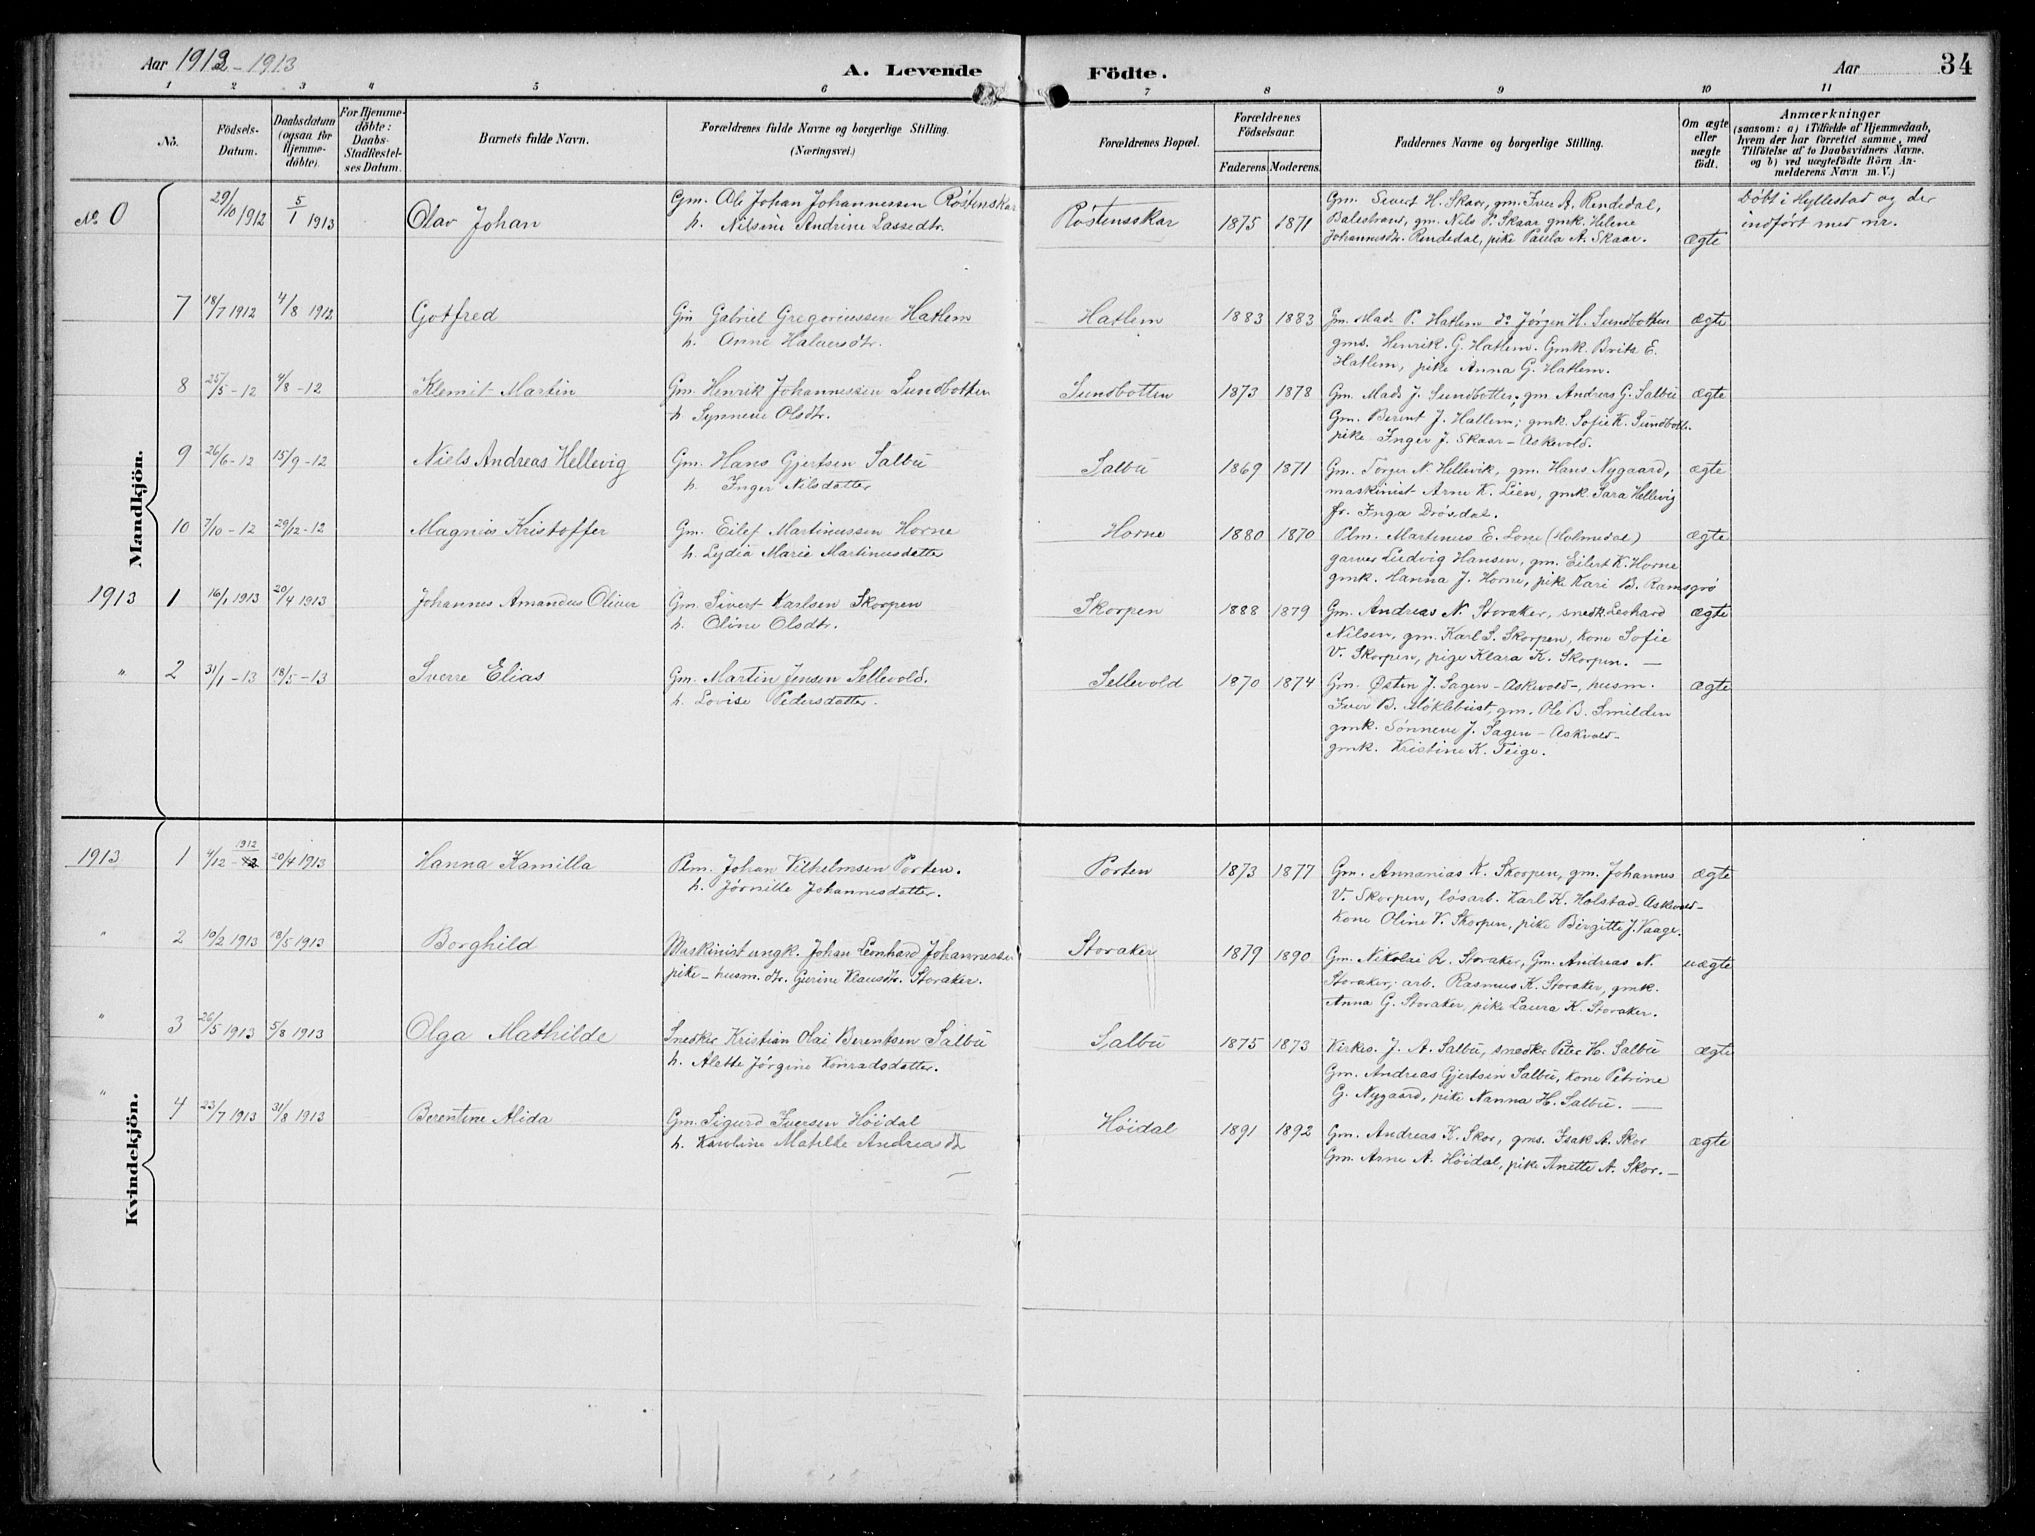 Aar 1912-1913
A. Levende Födte.
Aar 34
1 2 3 4 5 6 7 8 9 10 11
No.
Födsels-Datum.
Daabsdatum (ogsaa for Hjemme-döbte).
For Hjemme-döbte: Daabs-Stadfestel-ses Datum.
Barnets fulde Navn.
Forældrenes fulde Navne og borgerlige Stilling.
(Næringsvei.)
Forældrenes Bopæl.
Forældrenes Födselsaar.
Faderens. Moderens.
Faddernes Navne og borgerlige Stilling.
Om ægte eller uægte födt.
Anmærkninger
(saasom: a) i Tilfælde af Hjemmedaab, hvem der har forrettet samme, med Tilföielse af to Daabsvidners Navne, og b) ved uægtefödte Börn Anmelderens Navn m. V.)
Mandkjön.
No 0 29/10 1912 5/1 1913 Olav Johan Gm. Ole Johan Johannessen Röstenskar Röstensskar 1875 1871 Gm. Sivert H. Skaar, gm. Iver A. Rendedal, Döbt i Hyllestad og der
h. Nilsine Andrine Lassedtr. Balestrand, gm. Nils P. Skaar gmk. Helene indfört med nr.
Johannesdtr. Rendedal, pike Paula A. Skaar. ægte
7 18/7 1912 4/8 1912 Gotfred Gm Gabriel Gregoriussen Hatlem Hatlem 1883 1883 Gm. Mads P. Hatlem do Jørgen H. Sundbotten ægte
h. Anne Halversdtr. gms. Henrik G. Hatlem. Gmk. Brite E.
Hatlem, pike Anna G. Hatlem.
8 25/5-12 4/8-12 Klemit Martin Gm. Henrik Johannessen Sundbotten Sundbotten 1873 1878 Gm. Mads J. Sundbotten, gm Andreas G. Salbu ægte
h. Synneve Olsdtr. Gm. Berent J. Hatlem; gmk. Sofie K. Sundbott.
pike Inger J. Skaar-Askevold.
9 26/6-12 15/9-12 Niels Andreas Hellevig Gm. Hans Gjertsen Salbu Salbu 1869 1871 Gm. Torger N. Hellevik, gm. Hans Nygaard, ægte
h. Inger Nilsdatter maskinist Arne K. Lien, gmk. Sara Hellevig
fr. Inga Drösdal.
10 7/10-12 29/12-12 Magnus Kristoffer Gm. Eilef Martinussen Horne Horne 1880 1870 Plm. Martinus E. Lone (Holmedal) ægte
h. Lydia Marie Martinusdatter garver Ludvig Hansen, gm. Eilert K. Horne
gmk. Hanna J. Horne, pike Kari B. Ramsgrö
1913 1 16/1 1913 20/4 1913 Johannes Amandus Oliver Gm. Sivert Karlsen Skorpen Skorpen 1888 1879 Gm. Andreas N. Storaker, snedk. Leohard ægte
h. Oline Olsdtr. Nilsen, gm. Karl S. Skorpen, kone Sofie
V. Skorpen, pige Klara K. Skorpen. —
" 2 31/1-13 18/5-13 Sverre Elias Gm. Martin Jensen Sellevold. Sellevold 1870 1874 Gm. Østen J. Sagen-Askevold-, husm. ægte
h. Lovise Pedersdatter. Iver B. Möklebust, gm. Ole B. Smilden
gmk. Sönneve J. Sagen-Askvold-
gmk. Kristine K. Teige.
Kvindekjön.
1913 1 4/12-1912 20/4 1913 Hanna Kamilla Plm. Johan Vilhelmsen Porten. Porten 1873 1877 Gm. Annanias K. Skorpen, gm. Johannes ægte
h. Jørnille Johannesdatter. V. Skorpen, lösarb. Karl K. Holstad-Askevold-
kone Oline V. Skorpen, pike Birgitte J. Vaage.
" 2 10/2 1913 18/5 1913 Borghild Maskinist ungk. Johan Leonhard Johannessen Storaker 1879 1890 Gm. Nikolai R. Storaker, Gm. Andreas N. uægte
pike-husm. dtr. Gurine Klausdtr. Storaker. Storaker, arb. Rasmus K. Storaker, gmk.
Anna G. Storaker, pike Laura K. Storaker.
" 3 26/5 1913 5/8 1913 Olga Mathilde Snedker Kristian Olai Berentsen Salbu Salbu 1875 1873 Kirkes. J. A. Salbu, snedker Peter H. Salbu ægte
h. Alette Jörgine Konradsdatter. Gm. Andreas Gjertsen Salbu, kone Petrine
G. Nygaard, pike Nanna H. Salbu. —
" 4 23/7 1913 31/8 1913 Berentine Alida Gm. Sigurd Iversen Höidal Höidal 1891 1892 Gm. Andreas K. Skor, gms. Isak A. Skor ægte
h. Karoline Matilde Andreasdtr Gm. Arne A. Höidal, pike Anette A. Skor. —